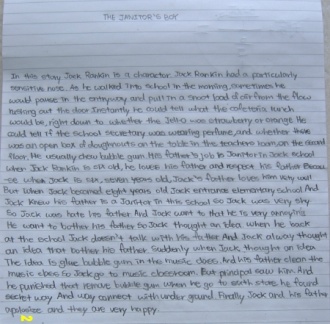 THE JANITOR'S BOY
In this story Jack Rankin is a character. Jack Rankin had a particularly
sensitive nose. As he walked into school in the morning, sometimes he
would pause in the entryway and pull in a snoot load of air from the flow
rushing out the door. Instantly he could tell what the cafeteria lunch
would be, right down to whether the Jell-O was strawberry or orange. He
could tell if the school secretary was wearing perfume, and whether there
was an open box of doughnuts on the table in the teachers' room on the second
floor. He usually chew bubble gum. His father's job is Janitor in Jack school.
when Jack Rankin is six old, he loves his father and respect his father
so when Jack is six, seven years old, Jack's father loves him very well.
But when Jack became eight years old Jack entrance elementary school And
Jack knew his father is a Janitor in this school So Jack was very shy
So Jack was hate his father And Jack want to that He is very annoying
He want to bother his father So Jack thought an idea when he look
at the school Jack doesn't talk with his father And Jack always thought
an idea that bother his father. Suddenly when Jack, thought an idea
The idea is glue bubble gum in the music class. And his father clean the
music class So Jack go to music classroom. But principal saw him And
he punished that remove bubble gum when he go to store he found
secret way. And way connect with under ground. Finally Jack and his father
apologize and they are very happy.
2